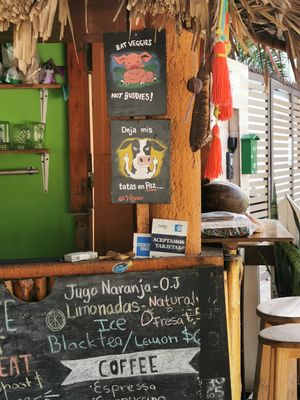 EAT VEGGIES
NOT BUDDIES!
Deja mis
tetas en Paz...
Vegan
ACEPTAMOS
TARJETAS
Jugo Naranja-O.J
Limonadas-Natural
Ice Fresa
Black tea/Lemon
EAT
COFFEE
Espresso